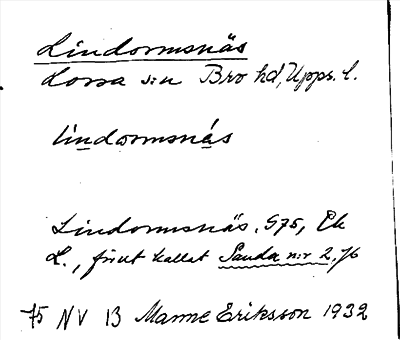 Lindormsnäs
Lossa s:n Bro hd, Upps. l.
lindormsnás
Lindormsnäs, G75, Ek
L., förut kallat Sanda n:r 2, J6
75 NV 13 Manne Eriksson 1932